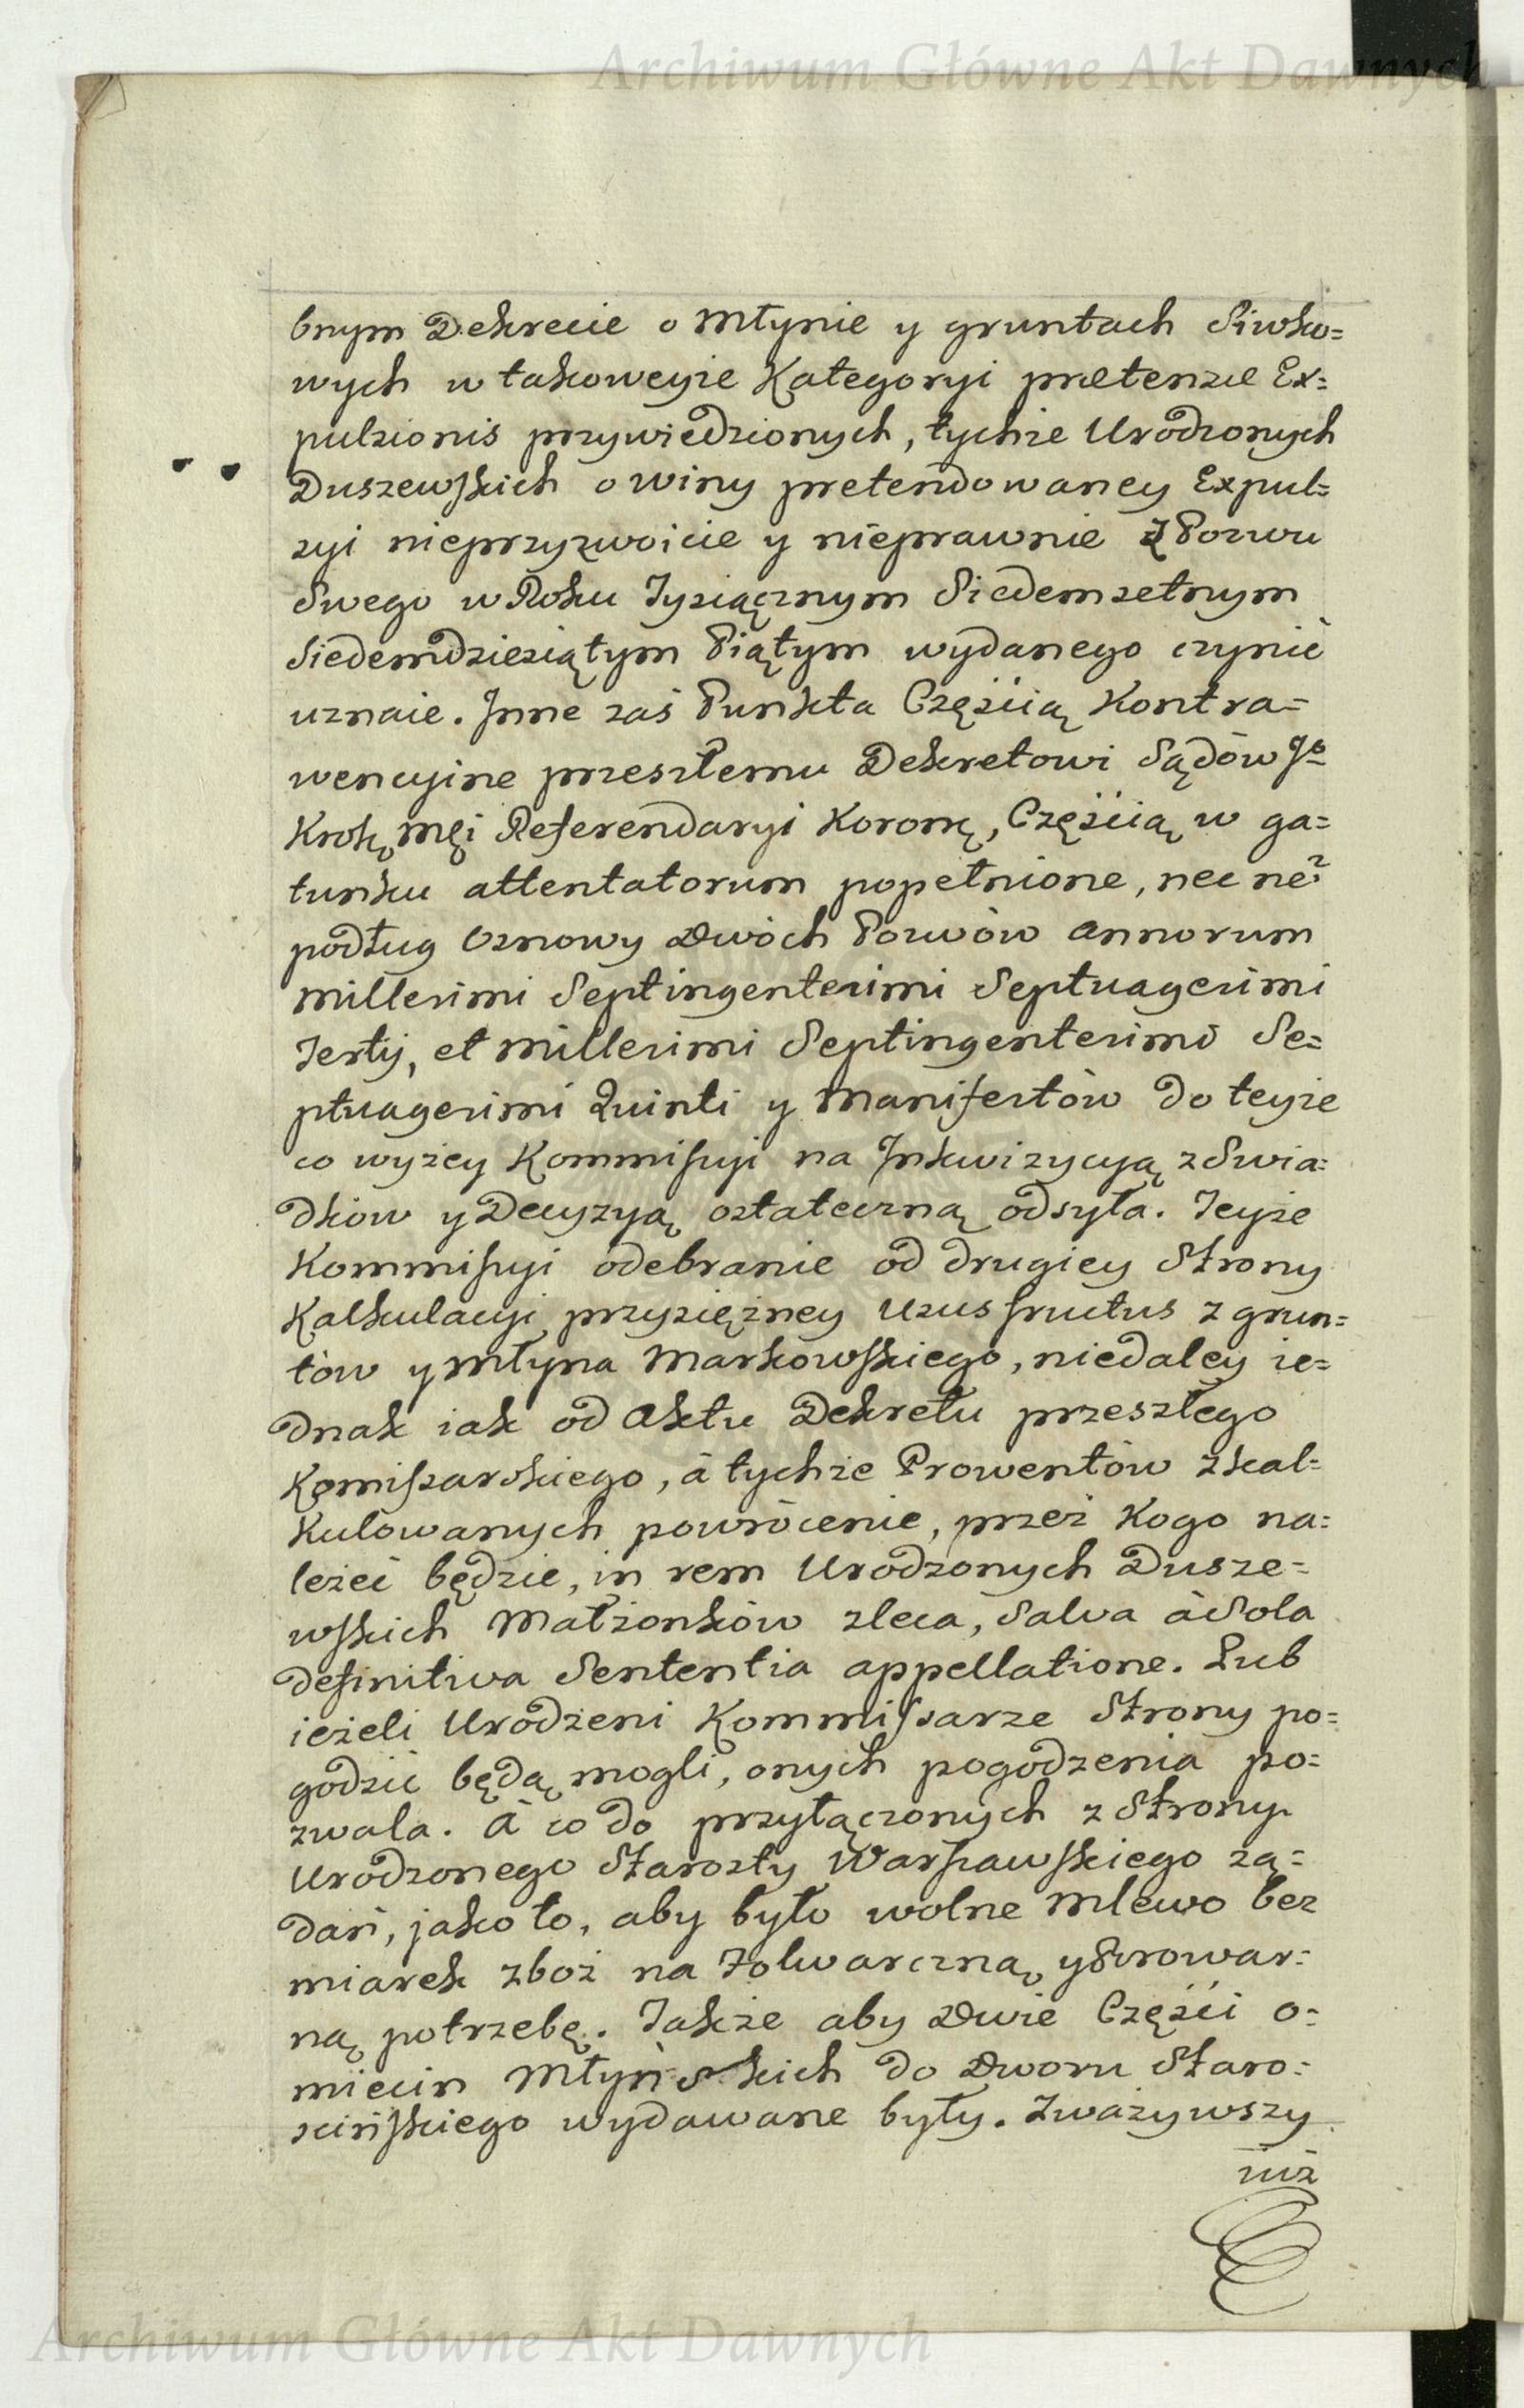 Archiwum Główne Akt Dawnych
bnym Dekrecie o Młynie y gruntach Siwko=
wych w takoweyże Kategoryi prætensæ Ex=
pulsionis przywiedzionych, tychże Urodzonych
Duszewskich o winy pretendowaney Expul=
syi nieprzyzwoicie y nieprawnie z Pozwu
Swego w Roku Tysiącznym Siedemsetnym
Siedemdziesiątym Piątym wydanego czynić
uznaie. Inne zaś Punkta Częścią Kontra=
wencyine przeszłemu Dekretowi Sądów Jo
Krolę Męi Referendaryi Koronę, Częścią w ga=
tunku attentatorum popełnione, nec ne?
podług Osnowy Dwóch Pozwów Annorum
Millesimi Septingentesimi Septuagesimi
Tertij, et Millesimi Septingentesimi Se=
ptuagesimi Quinti y Manifestów do teyże
co wyżey Kommissyi na Inkwizycyą z Swia=
dków y Decyzyą ostateczną odsyła. Teyże
Kommissyi odebranie od drugiey Strony
Kalkulacyi przysiężney Usus fructus z grun=
tów y Młyna Markowskiego, niedaley ie=
dnak iak od Aktu Dekretu przeszłego
Komissarskiego, á tychże Prowentów zkal=
kulowanych powrócenie, przez Kogo na=
leżeć będzie, in rem Urodzonych Dusze=
wskich Małżonków zleca, Salva à Sola
definitiva Sententia appellatione. Lub
ieżeli Urodzeni Kommissarze Strony po=
godzić będą mogli, onych pogodzenia po=
zwala. A co do przyłączonych z Strony
Urodzonego Starosty Warszawskiego żą=
dań, jako to, aby było wolne Mlewo bez
miarek zboż na Folwarczną y Browar=
ną potrzebę. Także aby Dwie Części o=
miecin Młyńskich do Dworu Staro=
scińskiego wydawane były. Zważywszy
iuż
Archiwum Główne Akt Dawnych